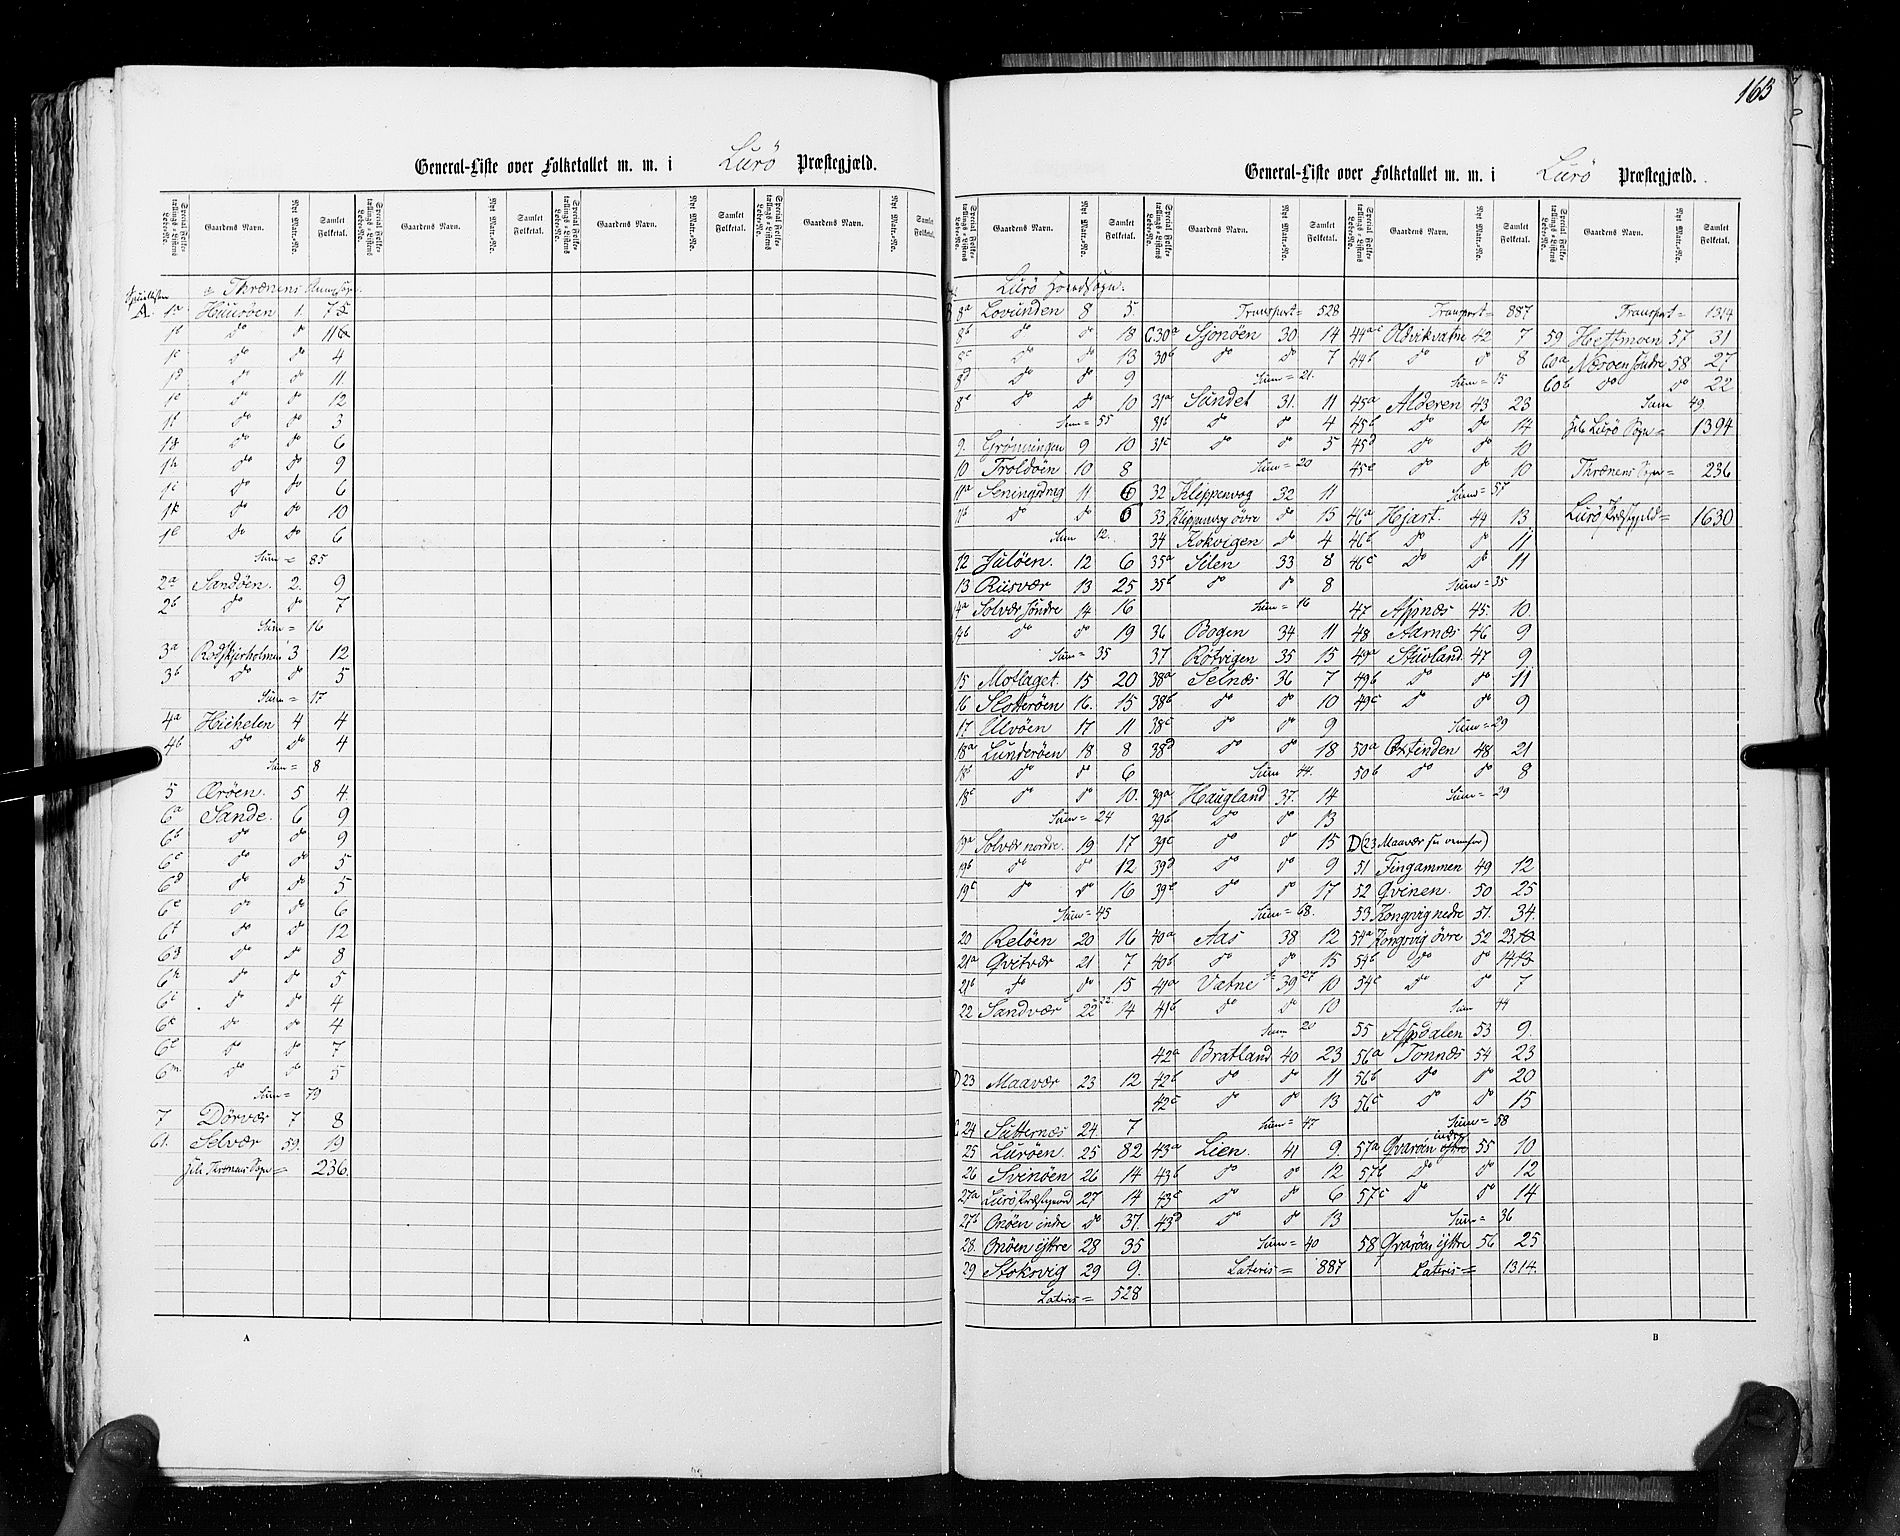 163
General-Liste over Folketallet m. m. i Lurö Præstegjæld.
Special Folketællings-Listens Løbe-No. Gaardens Navn. Nyt Matr.-No. Samlet Folketal.
Thrænens
A. 1a Huusöen 1. 7
1b do do 11
1c do do 4
1d do do 11
1e do do 12
1f do do 3
1g do do 6
1h do do 9
1i do do 6
1k do do 10
1l do do 6
Sum = 85
2a Sandöen. 2. 9
2b do do 7
Sum = 16
3a Rodskjerholmen 3 12
3b do do 5
Sum = 17
4a Hikelen 4 4
4b do do 4
Sum = 8
5 Œröen. 5 4.
6a Sande. 6 9
6b do do 9
6c do do 5
6d do do 5
6e do do 6
6f do do 12
6g do do 8
6h do do 5
6i do do 4
6k do do 4
6l do do 7
6m. do do 5
Sum = 79
7 Dörvær 7 8
61. Selvær 59. 19
Thrænens Sogn = 236.
A
General-Liste over Folketallet m. m. i Lurö Præstegjæld.
Special Folketællings-Listens Løbe-No. Gaardens Navn. Nyt Matr.-No. Samlet Folketal.
Lurö Hovedsogn.
8a Lovunden 8 5.
8b do do 18
8c do do 13
8d do do 9
8e do do 10
Sum = 55
9. Grönningen 9 10
10 Troldöen 10 8
11a Seningsdrag 11 6
11b do do 6
Sum 12.
12 Julöen. 12 6
13 Riisvær 13 25
14a Solvær söndre 14 16
14b do do 19
Sum = 35
15 Motlaget. 15 20
16 Slotteröen 16. 15
17 Ulvöen 17 11
18a Lunderöen 18 8
18b do do 6
18c do do 10.
Sum = 24
19a Solvær nordre. 19 17
19b do do 12
19c do do 16
Sum = 45
20 Relöen 20 16
21a Qvitvær 21 7
21b do do 15
22 Sandvær 22 14
D 23 Maavær 23 12
24 Sutternæs 24 7
25 Luröen. 25 82
26 Svinöen 26 14
27a Lurö Præstegaard 27 14
27b Onöen indre do 37.
28. Onöen ÿttre 28 35
29 Stoksvig 29 9.
Lateris = 528
Transport = 528
C. 30a Sjonöen 30 14
30b do do 7
Sum = 21.
31a Sundet 31. 11
31b do do 4
31c do do 5
Sum = 20
32 Klippenvog 32 11
33 Klippenvog övre do 15
34 Kokvigen do 4
35a Silen 33 8
35b do do 8
Sum = 16
36 Bogen 34 11
37 Rötvigen 35 15
38a Selnæs 36 7
38b do do 10
38c do do 9
38d do do 18
Sum 44.
39a Haugland 37. 14
39b do do 13
39c do do 15
39d do do 9
39e do do 17
Sum = 68.
40a Aas 38 12
40b do do 15
27
41a Vatne 39 10
41b do do 10
Sum 20
42a Bratland 40 23
42b do do 11
42c do do 13
Sum = 47
43a Lien. 41 9.
43b do do 12
43c do do 6
43d do do 13
Sum = 40
Lateris = 887
Transport = 887
44a Oldvikvatne 42 7
44b do do 8
Sum = 15
45a Alderen 43 23
45b do do 14
45d do do 10
45e do do 10
Sum = 57
46a Hjart. 44 13
46b do do 11
46c do do 11
Sum = 35
47 Aspnæs 45. 10
48 Aarnæs 46 9
49a Stuvland 47 9
49b do do 11
49c do do 9
Sum = 29
50a Oxtinden 48 21
50b do do 8
Sum = 29
D (23 Maavær
51 Tingammen 49 12
52 Qvinen. 50 25
53 Kongsvig nedre 51. 34.
54a Kongsvig övre 52 23
54b do do 14
54c do do 7
Sum 44
55 Aspdalen 53 9.
56a Tonnæs 54 23
56b do do 20
56c do do 15
Sum = 58
57a Qvaröen indre 55 10
57b do do 12
57c do do 14
Sum = 36
58 Qvaröen ÿttre 56 25
Lateris = 1314.
Transport = 1314
59 Hestmoen 57 31
60a Næsöen söndre 58 27
60b do do 22
Sum 49
Lurö Sogn = 1394
Thrænens Sogn = 236
Lurö Præstegjeld = 1630
B